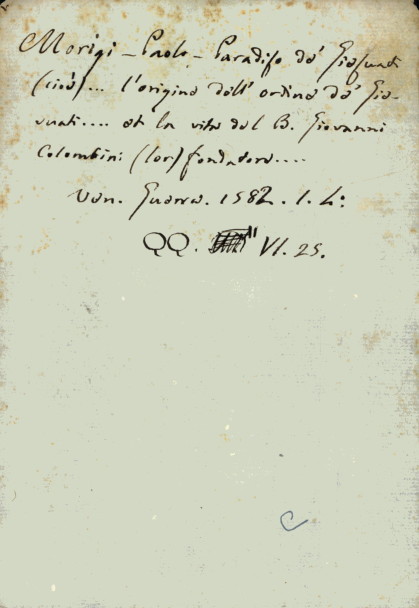 Morigi - Paolo - Paradiso de' Giesuati
(cioè)... l'origine dell' ordine de' Gie-
suati.... et la vita del B. Giovanni
Colombini (lor) fondatore....
Ven. Guerra. 1582. 1. 4:
QQ. VI. 25.
C